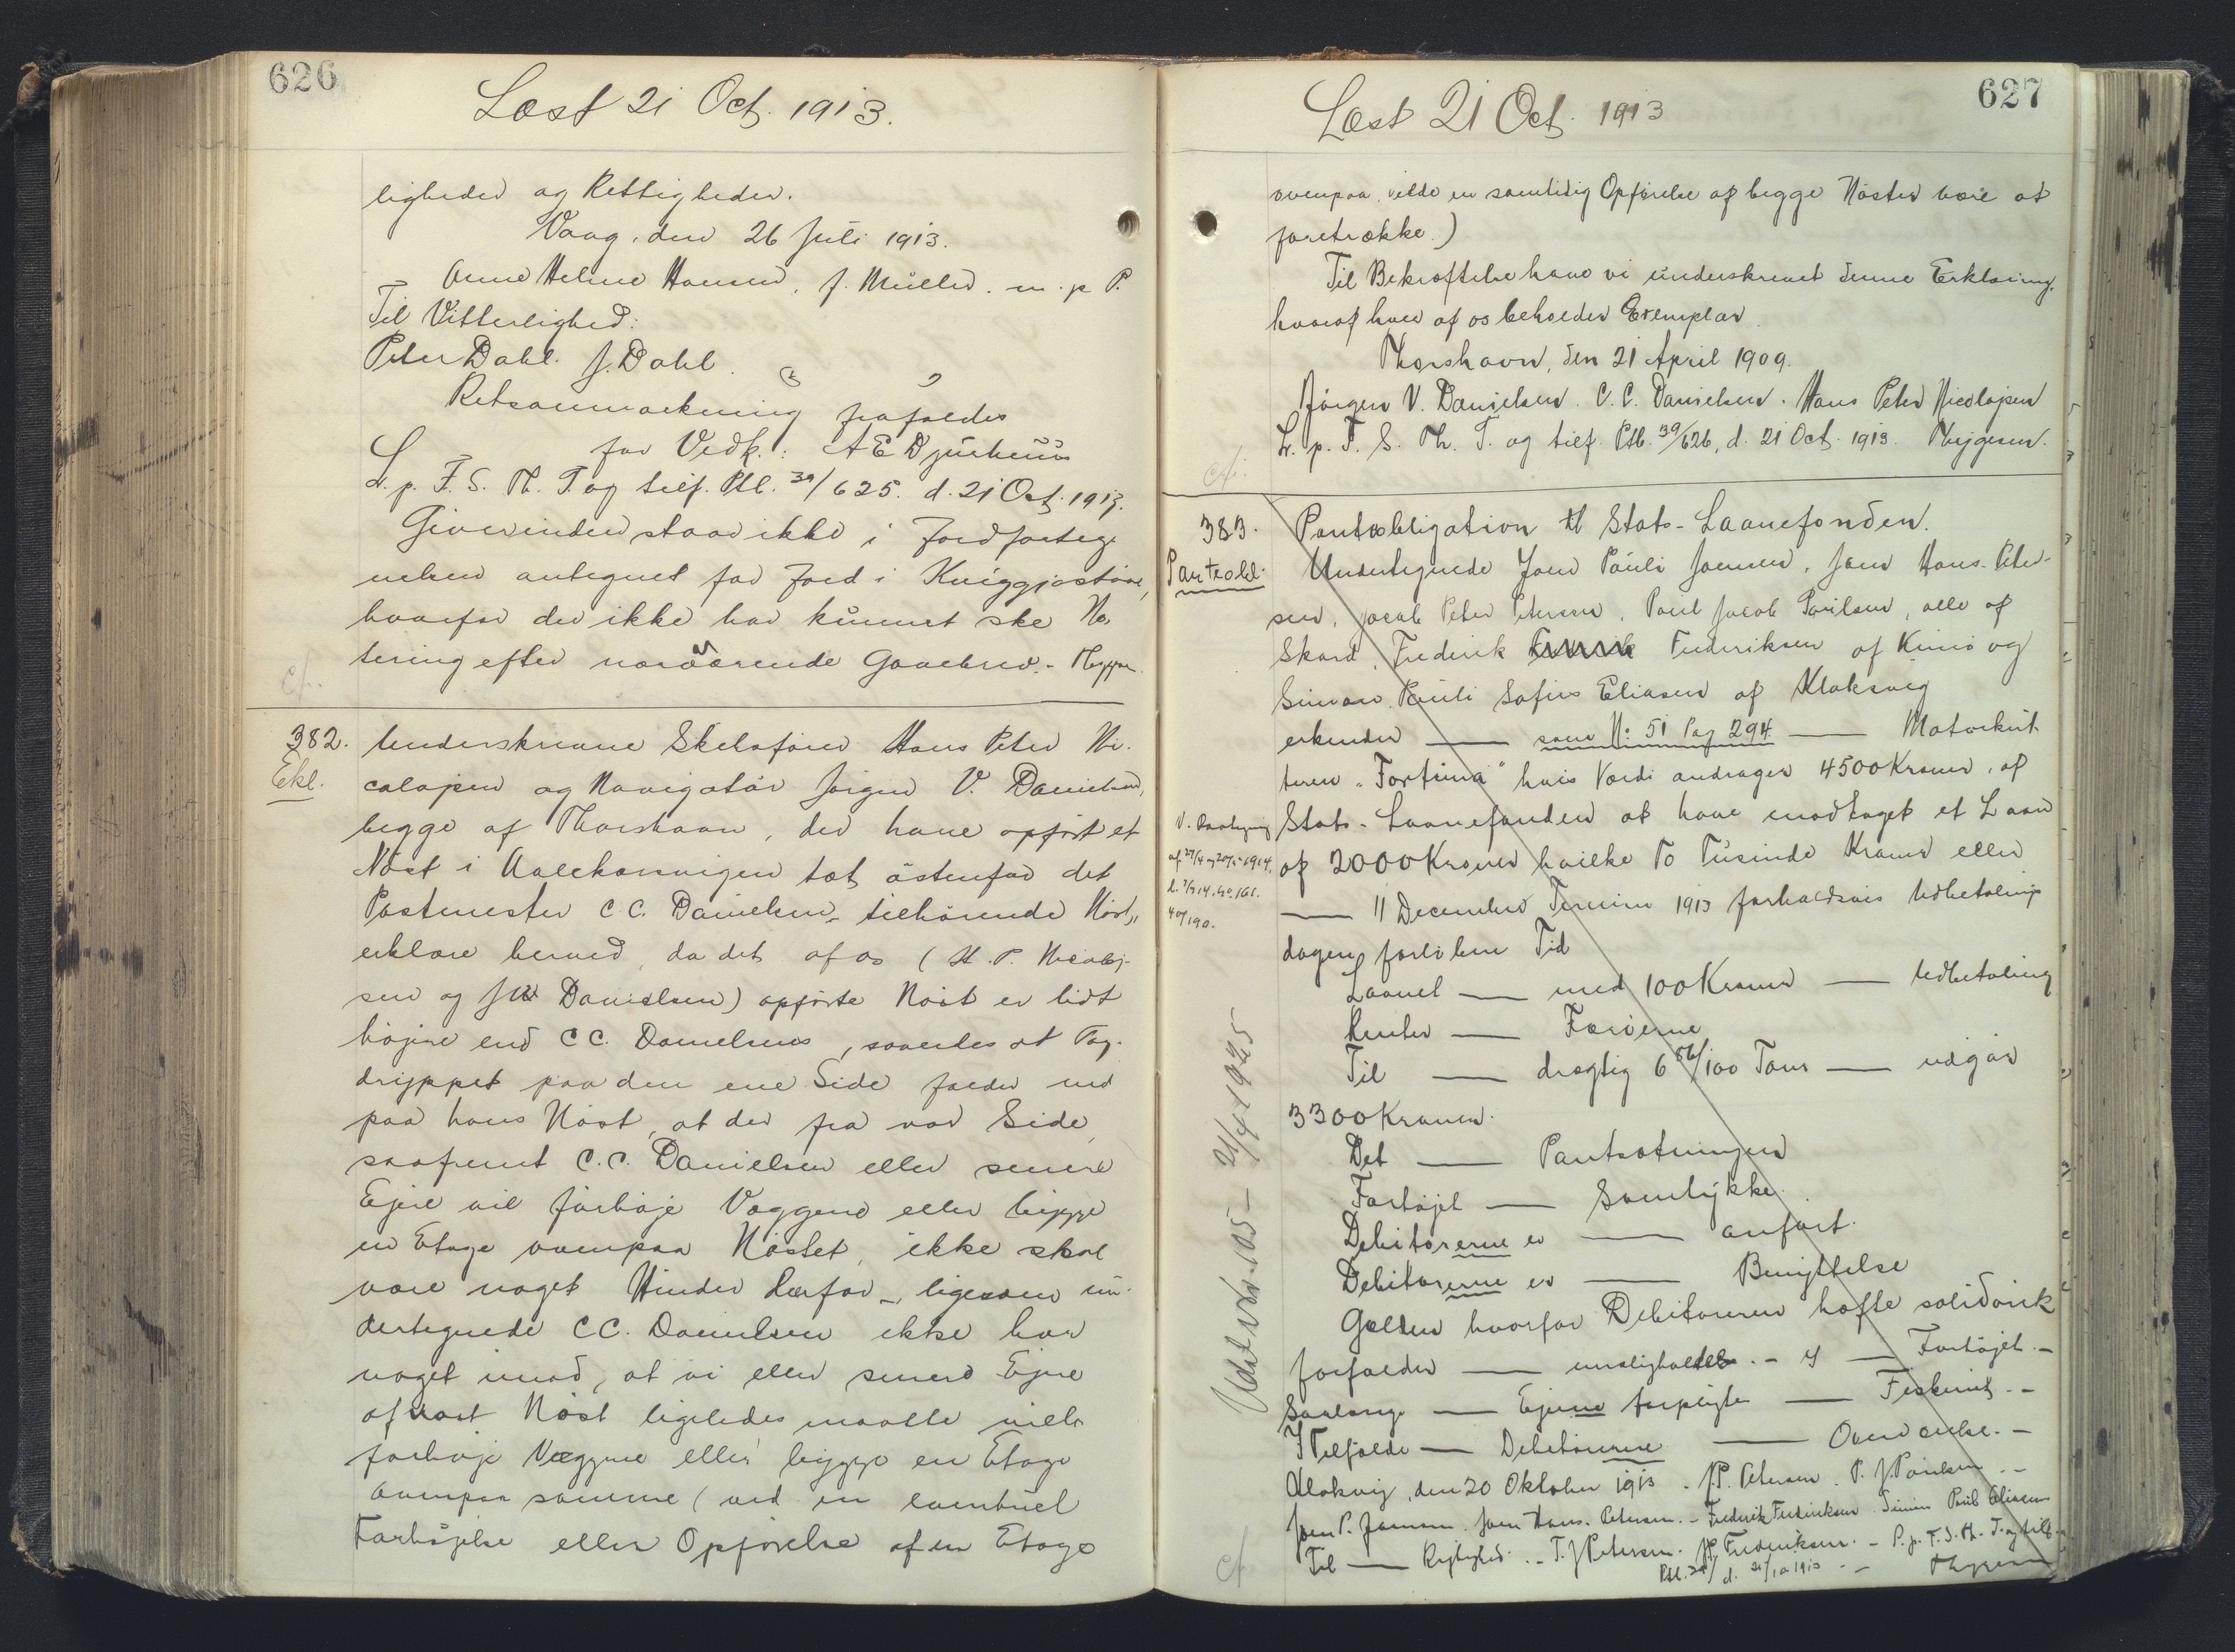 626
Læst 21 Oct. 1913.
ligheder og Rettigheder.
Vaag, den 26 Juli 1913.
Anne Helene Hansen, f. Müller. m. p P.
Til Vitterlighed:
Peter Dahl. J. Dahl.
Retsanmærkning frafaldes
for Vedk.: A E Djurhuus
L. p. F. S. Th. T. og tilf. Ptb. 39/625. d. 21 Oct. 1913.
Giverinden staar ikke i Jordforteg
nelsen antegnet for Jord i
hvorfor der ikke har kunnet ske No
tering efter nærværende Gavebrev. -
cf.
382.
Ekl.
Underskrevne Skibsfører Hans Peter Ni-
colajsen og Navigatør Jørgen V. Danielsen,
begge af Thorshavn, der have opført et
Nøst i tæt østenfor det
Postmester C C. Danielsen tilhørende Nøst,
erklære herved, da det af os (H. P. Nicolaj-
sen og J V Danielsen) opførte Nøst er lidt
højere end C C. Danielsens, saaledes at Tag-
dryppet paa den ene Side falder ned
paa hans Nøst, at der fra vor Side,
saafremt C. C. Danielsen eller senere
Ejere vil forhøje Væggene eller bygge
en Etage ovenpaa Nøstet, ikke skal
være noget Hinder derfor -, ligesom un-
dertegnede C C. Danielsen ikke har
noget imod, at vi eller senere Ejere
af vort Nøst ligeledes maatte ville
forhøje Væggene eller bygge en Etage
ovenpaa samme (ved en eventuel
Forhøjelse eller Opførelse af en Etage
627
Læst 21 Oct. 1913
ovenpaa, vilde en samtidig Opførelse af begge Nøster være at
foretrække.)
Til Bekræftelse have vi underskrevet denne Erklæring,
hvoraf hver af os beholder Exemplar.
Thorshavn, den 21 April 1909.
Jørgen V. Danielsen. C. C. Danielsen. Hans Peter Nicolajsen
L. p. F. S. Th. T. og tilf. Ptb. 39/626, d. 21 Oct. 1913. Thygesen.
cf.
383.
Pantobl.
Pantobligation til Stats-Laanefonden.
Undertegnede Joen Pauli Joensen, Joen Hans Peter-
sen, Jacob Peter Petersen, Poul Jacob Poulsen, alle af
Skard, Frederik Frederiksen af Kunø og
Simon Pauli Sofus Eliasen af Klaksvig
erkender — som No 51 Pag 294 — Motorkut-
teren "Fortuna" hvis Værdi andrager 4500 Kroner, af
Stats-Laanefonden at have modtaget et Laan
af 2000 Kroner hvilke To Tusinde Kroner eller
— 11 December Termin 1913 forholdsvis Udbetalings
dagen forløbne Tid
Laanet — med 100 Kroner — Udbetaling
Renter — Færøerne
Til — drægtig 6 56/100 Tons — udgør
3300 Kroner.
Det — Pantsætningen
Fartøjet — Samtykke.
Debitorerne er — anført.
Debitorerne er — Benyttelse
Gælden hvorfor Debitorerne hæfte solidarisk
forfalder — misligholdes. - — Fartøjet. -
Saalænge — Ejerne forpligte — Fiskeri. -
I Tilfælde — Debitorerne — Overværelse. -
Klaksvig, den 20 Oktober 1913. J. P. Petersen. P. J. Poulsen. -
Joen P. Joensen. Joen Hans Petersen. - Frederik Frederiksen. Simon Pauli Eliasen
Til — Rigtighed. - T. J Petersen. Frederiksen. - L. p. F. S. Th. T. og tilf.
Ptb. 39/ d. 21/10 1913 -
cf
V. Paategning
af 27/4 1914,
l. No. 161.
40/190.
Udsl. No. 105 - 21/4 1925